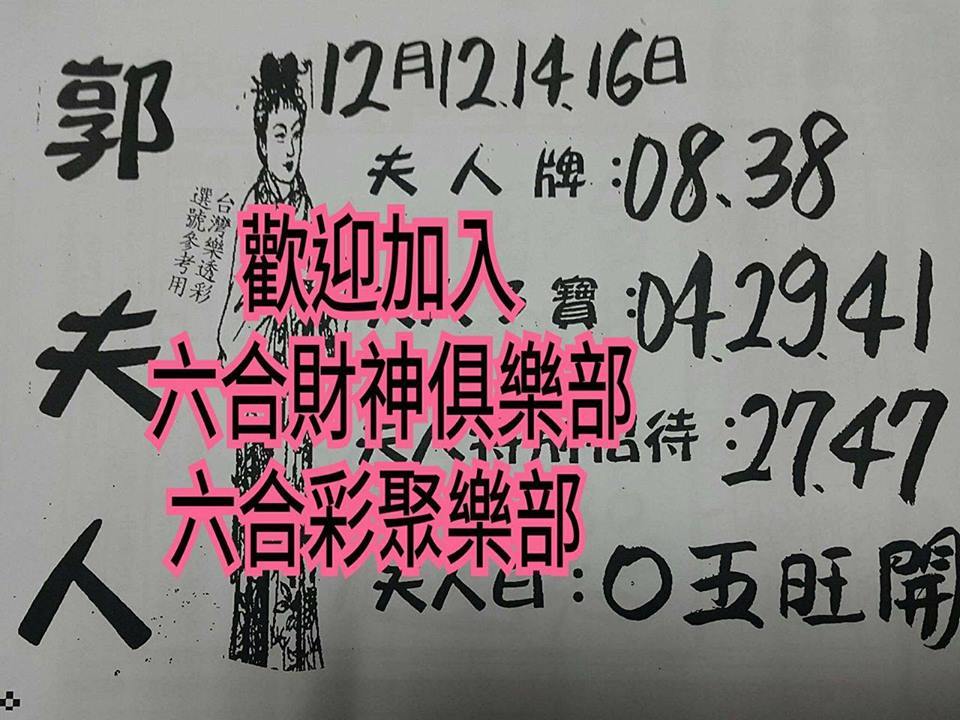 郭夫人
台灣樂透彩
選號參考用
12月12.14.16日
夫人牌:08.38
寶:04.29.41
待:27.47
夫人口:〇五旺開
歡迎加入
六合財神俱樂部
六合彩聚樂部